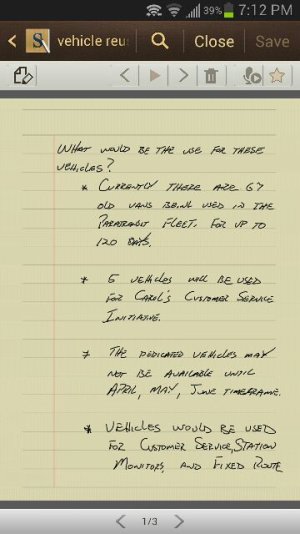 39% 7:12 PM
vehicle reu
Close
Save
WHAT WOULD BE THE USE FOR THESE
VEHICLES?
* CURRENTLY THERE ARE 67
OLD VANS BEING USED IN THE
PARATRANSIT FLEET. FOR UP TO
120 DAYS.
* 5 VEHICLES WILL BE USED
FOR CAROL'S CUSTOMER SERVICE
INITIATIVE.
* THE DEDICATED VEHICLES MAY
NOT BE AVAILABLE UNTIL
APRIL, MAY, JUNE TIMEFRAME.
* VEHICLES WOULD BE USED
FOR CUSTOMER SERVICE, STATION
MONITORS, AND FIXED ROUTE
1/3